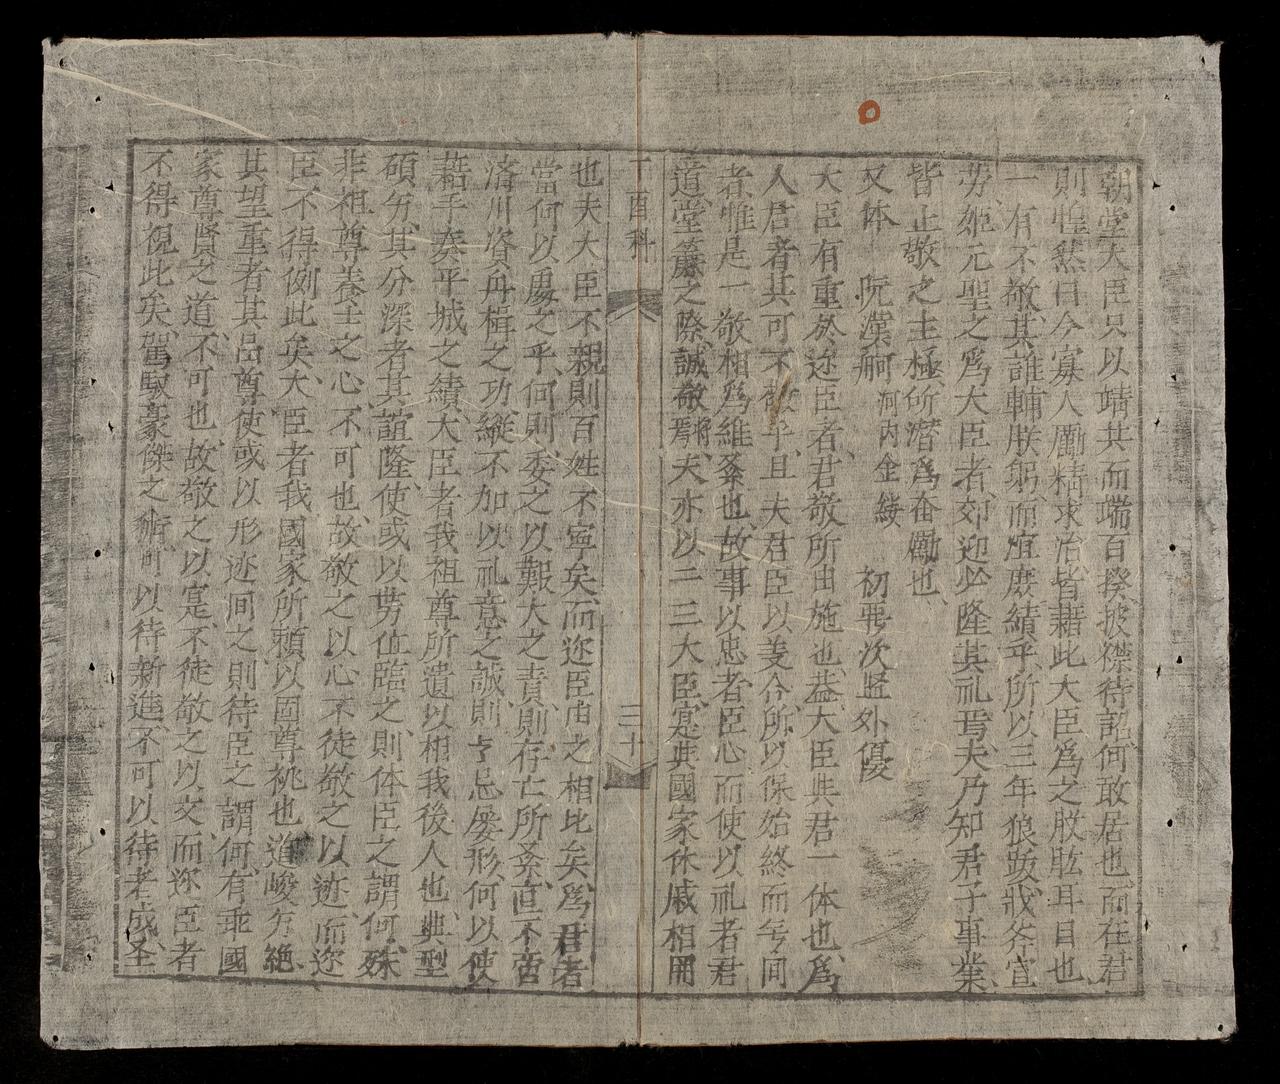 朝堂大臣只以靖其而端百揆披襟待詔何敢居也而在君
則惶然曰今寡人勵精求治皆藉此大臣爲之股肱耳目也
一有不敬其誰輔朕躬而庶績乎所以三年狼跋戕斧宣
劳姬元聖之爲大臣者郊迎必隆其礼焉夫乃知君子事業
皆止敬之主極所潛爲奋勵也
又体 阮漢舸 河内金緌 初覃次歴外優
大臣有重於迩臣者君敬所由施也葢大臣與君一体也爲
人君者其可不敬乎且夫君臣以義合所以保始終而无间
者惟是一敬相爲維系也故事以忠者臣心而使以礼者君
道堂簾之際誠敬將焉夫亦以二三大臣寔與國家休戚相関
一百科 三十
也夫大臣不親則百姓不寧矣而迩臣由之相比矣爲君者
當何以處之乎何則委之以艱大之責則存亡所系直不啻
済川資舟楫之功縱不加以礼意之誠則亡忌屡形何以使
藉手奏平城之績大臣者我祖尊所遺以相我後人也典型
碩穷其分深者其誼隆使或以势位臨之則体臣之謂何殊
非祖尊養士之心不可也故敬之以心不徒敬之以迹而迩
臣不得例此矣大臣者我國家所頼以固尊祧也道峻穷絶
其望重者其品尊使或以形迹间之則待臣之謂何有乖國
家尊賢之道不可也故敬之以寔不徒敬之以文而迩臣者
不得視此矣駕馭豪傑之術可以待新進不可以待老成圣